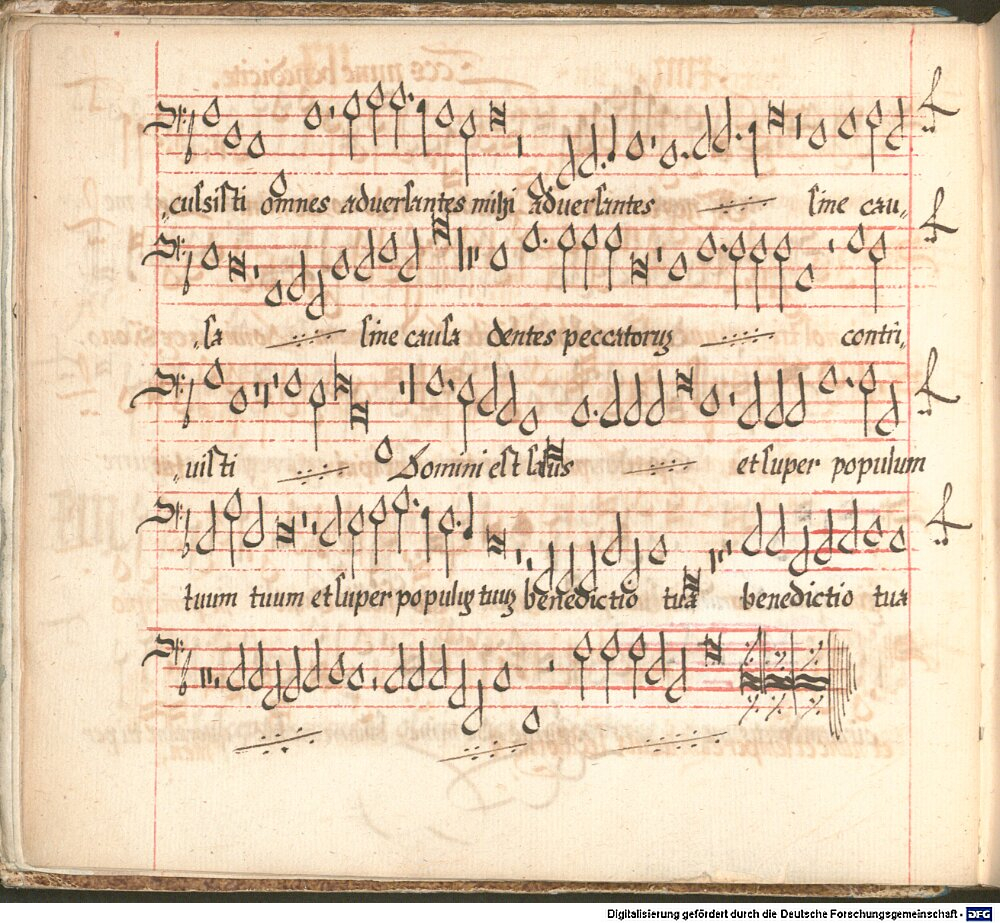 „culsisti omnes aduersantes mihi aduersantes sine cau„
„sa sine causa dentes peccatoruʒ contri„
„uisti Domini est salus et super populum
tuum tuum et super populuʒ tuuʒ benedictio tua benedictio tua
Digitalisierung gefördert durch die Deutsche Forschungsgemeinschaft - DFG